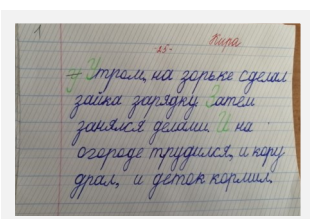 1
Кира
-25-
Утром, на зорьке сделал
зайка зарядку Затем
занялся делами. И на
огороде трудился, и кору
драл, и деток кормил.